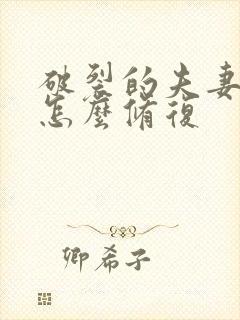 破裂的夫妻
怎麼脩復
卿希子